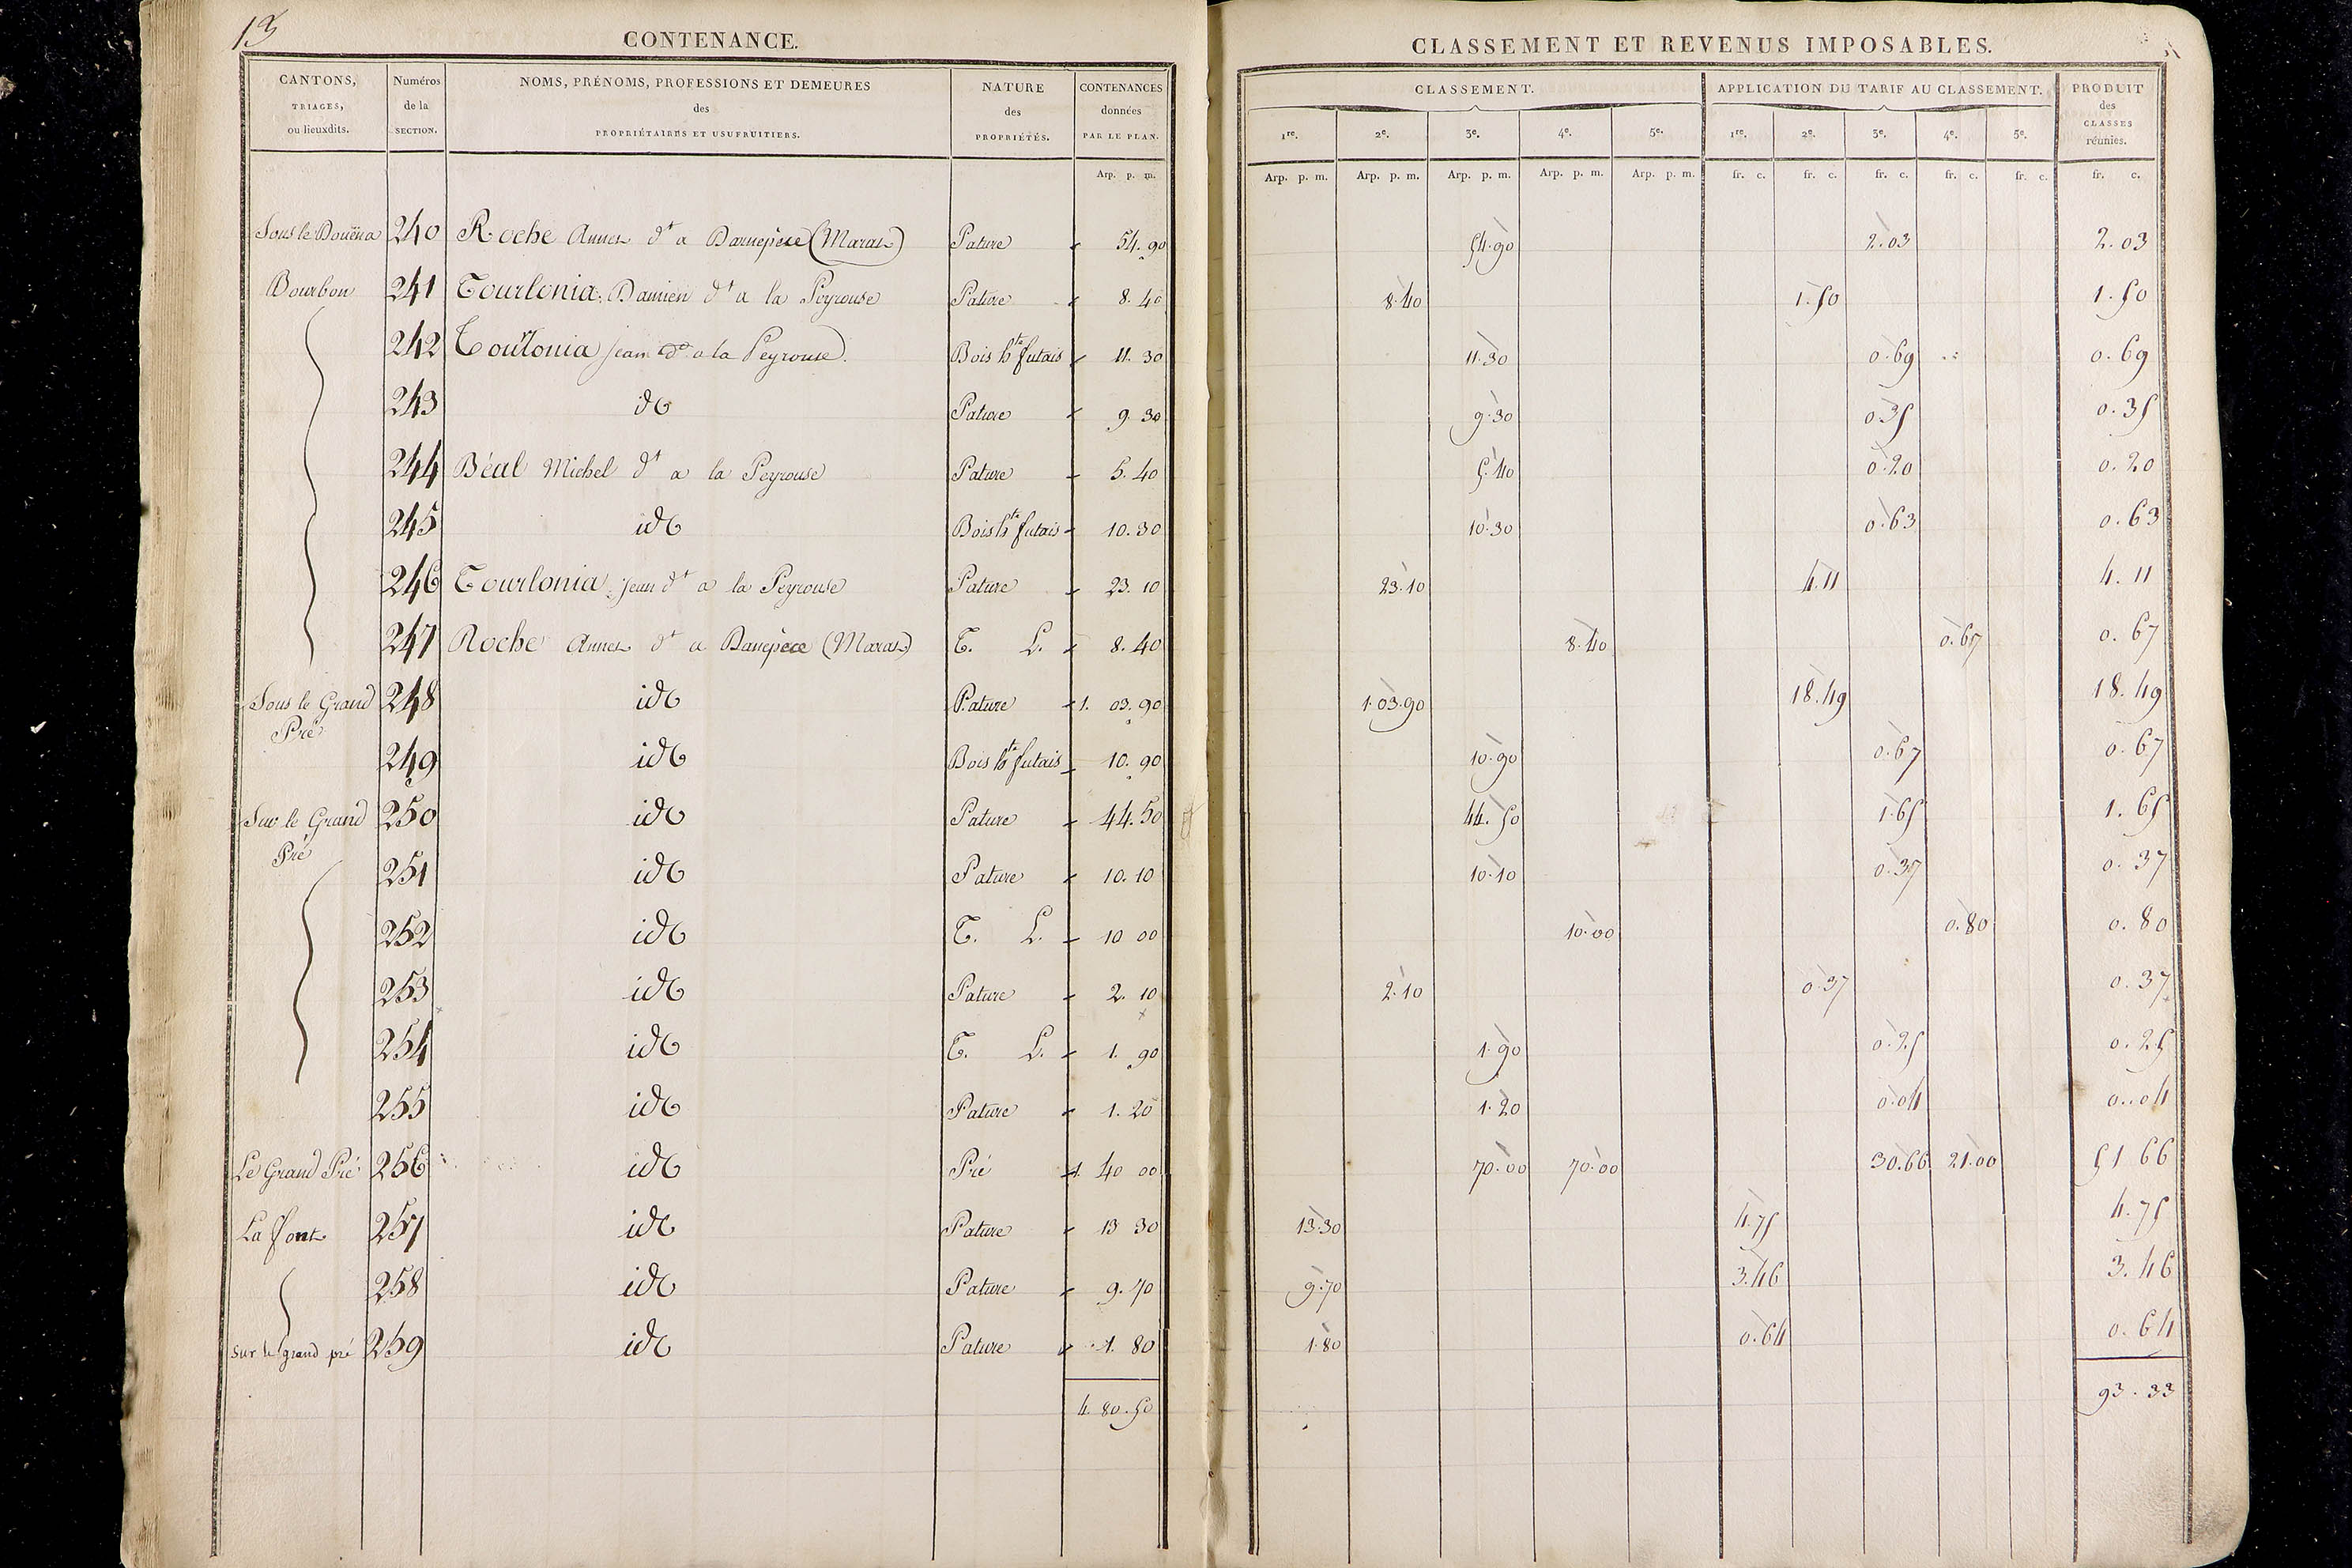 13
CONTENANCE.
CANTONS,
TRIAGES,
ou lieuxdits.
Numéros
de la
SECTION.
NOMS, PRÉNOMS, PROFESSIONS ET DEMEURES
des
PROPRIÉTAIRES ET USUFRUITIERS.
NATURE
des
PROPRIÉTÉS.
CONTENANCES
données
PAR LE PLAN.
Arp. p. m.
Sous le 240 Roche Annet dt a (Marat) Pature 54. 90
Bourbon 241 Tourlonia Damien dt a la Peyrouse Pature 8. 40
242 Tourlonia jean dt a la Peyrouse. Bois hte futais 11. 30
243 id Pature 9 30
244 Béal Michel dt a la Peyrouse Pature 5. 40
245 id Bois hte futais 10. 30
246 Tourlonia jean dt a la Peyrouse Pature 23. 10
247 Roche Annet dt a (Marat) T. L. 8. 40
Sous le Grand Pré 248 id Pature 1. 03. 90
249 id Bois hte futais 10. 90
Sur le Grand Pré 250 id Pature 44. 50
251 id Pature 10. 10
252 id T. L. 10 00
253 id Pature 2. 10
254 id T. L. 1. 90
255 id Pature 1. 20
Le Grand Pré 256 id Pré 1 40 00
La font 257 id Pature 13 30
258 id Pature 9. 70
sur le grand pré 259 id Pature 1. 80
4 80. 50
CLASSEMENT ET REVENUS IMPOSABLES.
CLASSEMENT.
1re. 2e. 3e. 4e. 5e.
APPLICATION DU TARIF AU CLASSEMENT.
1re. 2e. 3e. 4e. 5e.
PRODUIT
des
CLASSES
réunies.
Arp. p. m. Arp. p. m. Arp. p. m. Arp. p. m. Arp. p. m. fr. c. fr. c. fr. c. fr. c. fr. c. fr. c.
54.90 2.03 2.03
8.40 1.50 1.50
11.30 0.69 0.69
9.30 0.35 0.35
5.40 0.20 0.20
10.30 0.63 0.63
23.10 4.11 4.11
8.40 0.67 0.67
1.03.90 18.49 18.49
10.90 0.67 0.67
44.50 1.65 1.65
10.10 0.37 0.37
10.00 0.80 0.80
2.10 0.37 0.37
1.90 0.25 0.25
1.20 0.04 0.04
70.00 70.00 30.66 21.00 51 66
13.30 4.75 4.75
9.70 3.46 3.46
1.80 0.64 0.64
93.33